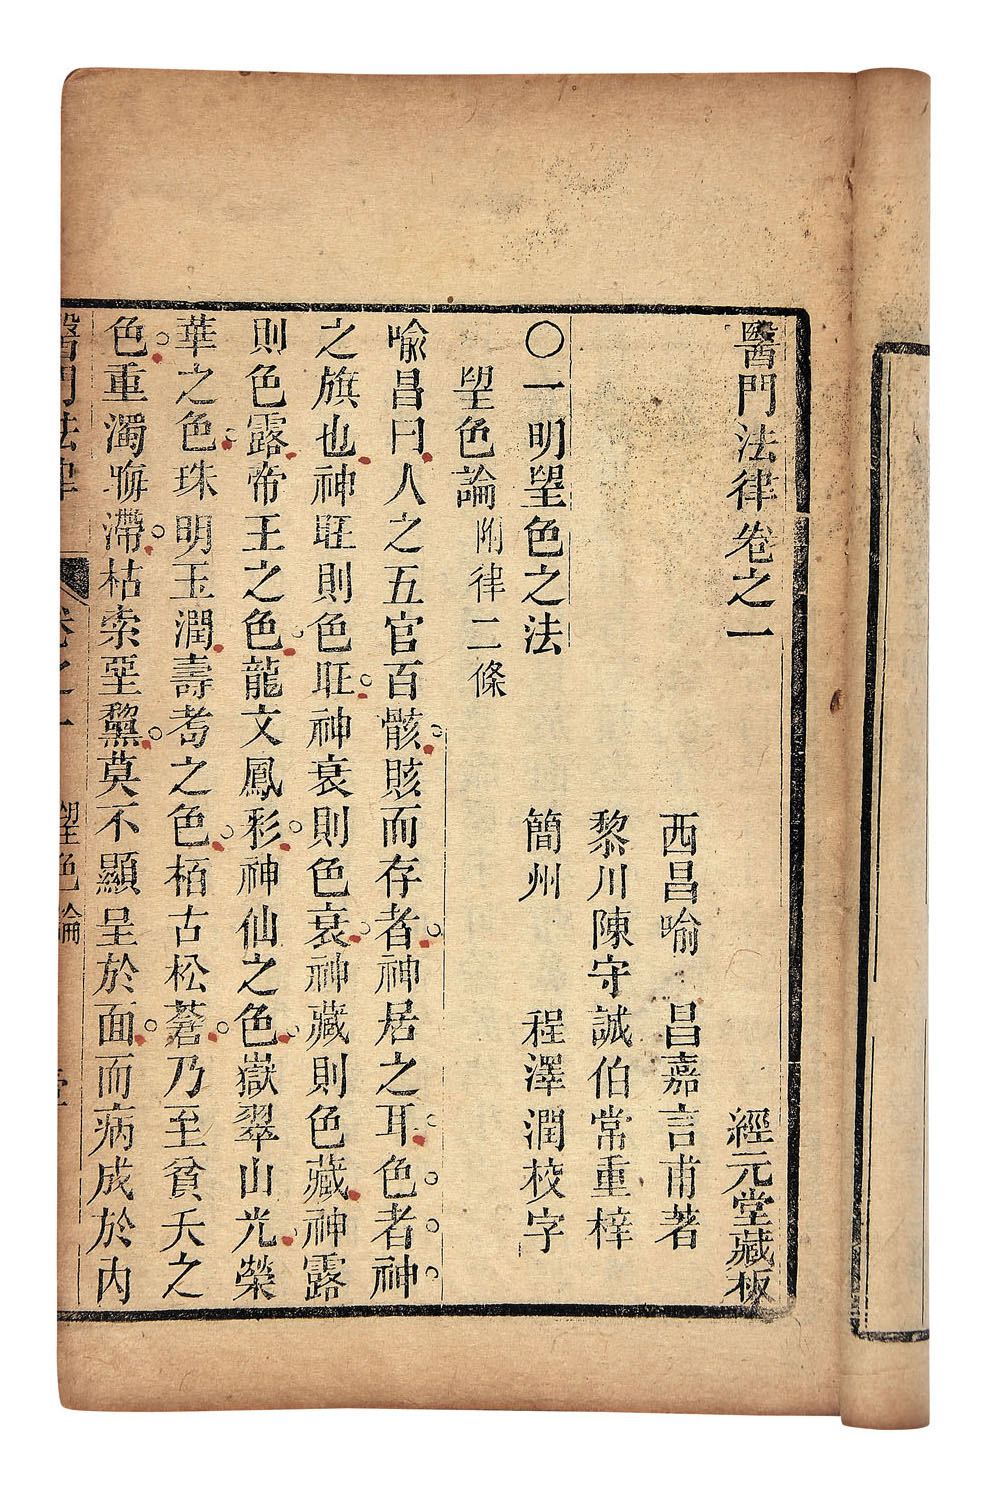 醫門法律卷之一　經元堂藏板
西昌喻　昌嘉言甫著
黎川陳守誠伯常重梓
簡州　程澤潤校字
○一明望色之法
望色論附律二條
喻昌曰人之五官百骸賅而存者神居之耳色者神
之旗也神旺則色旺神衰則色衰神藏則色藏神露
則色露帝王之色龍文鳳彩神仙之色嶽翠山光榮
華之色珠明玉潤壽耇之色栢古松蒼乃至貧夭之
色重濁晦滯枯索堊黧莫不顯呈於面而病成於內
醫門法律　卷之一　望色論